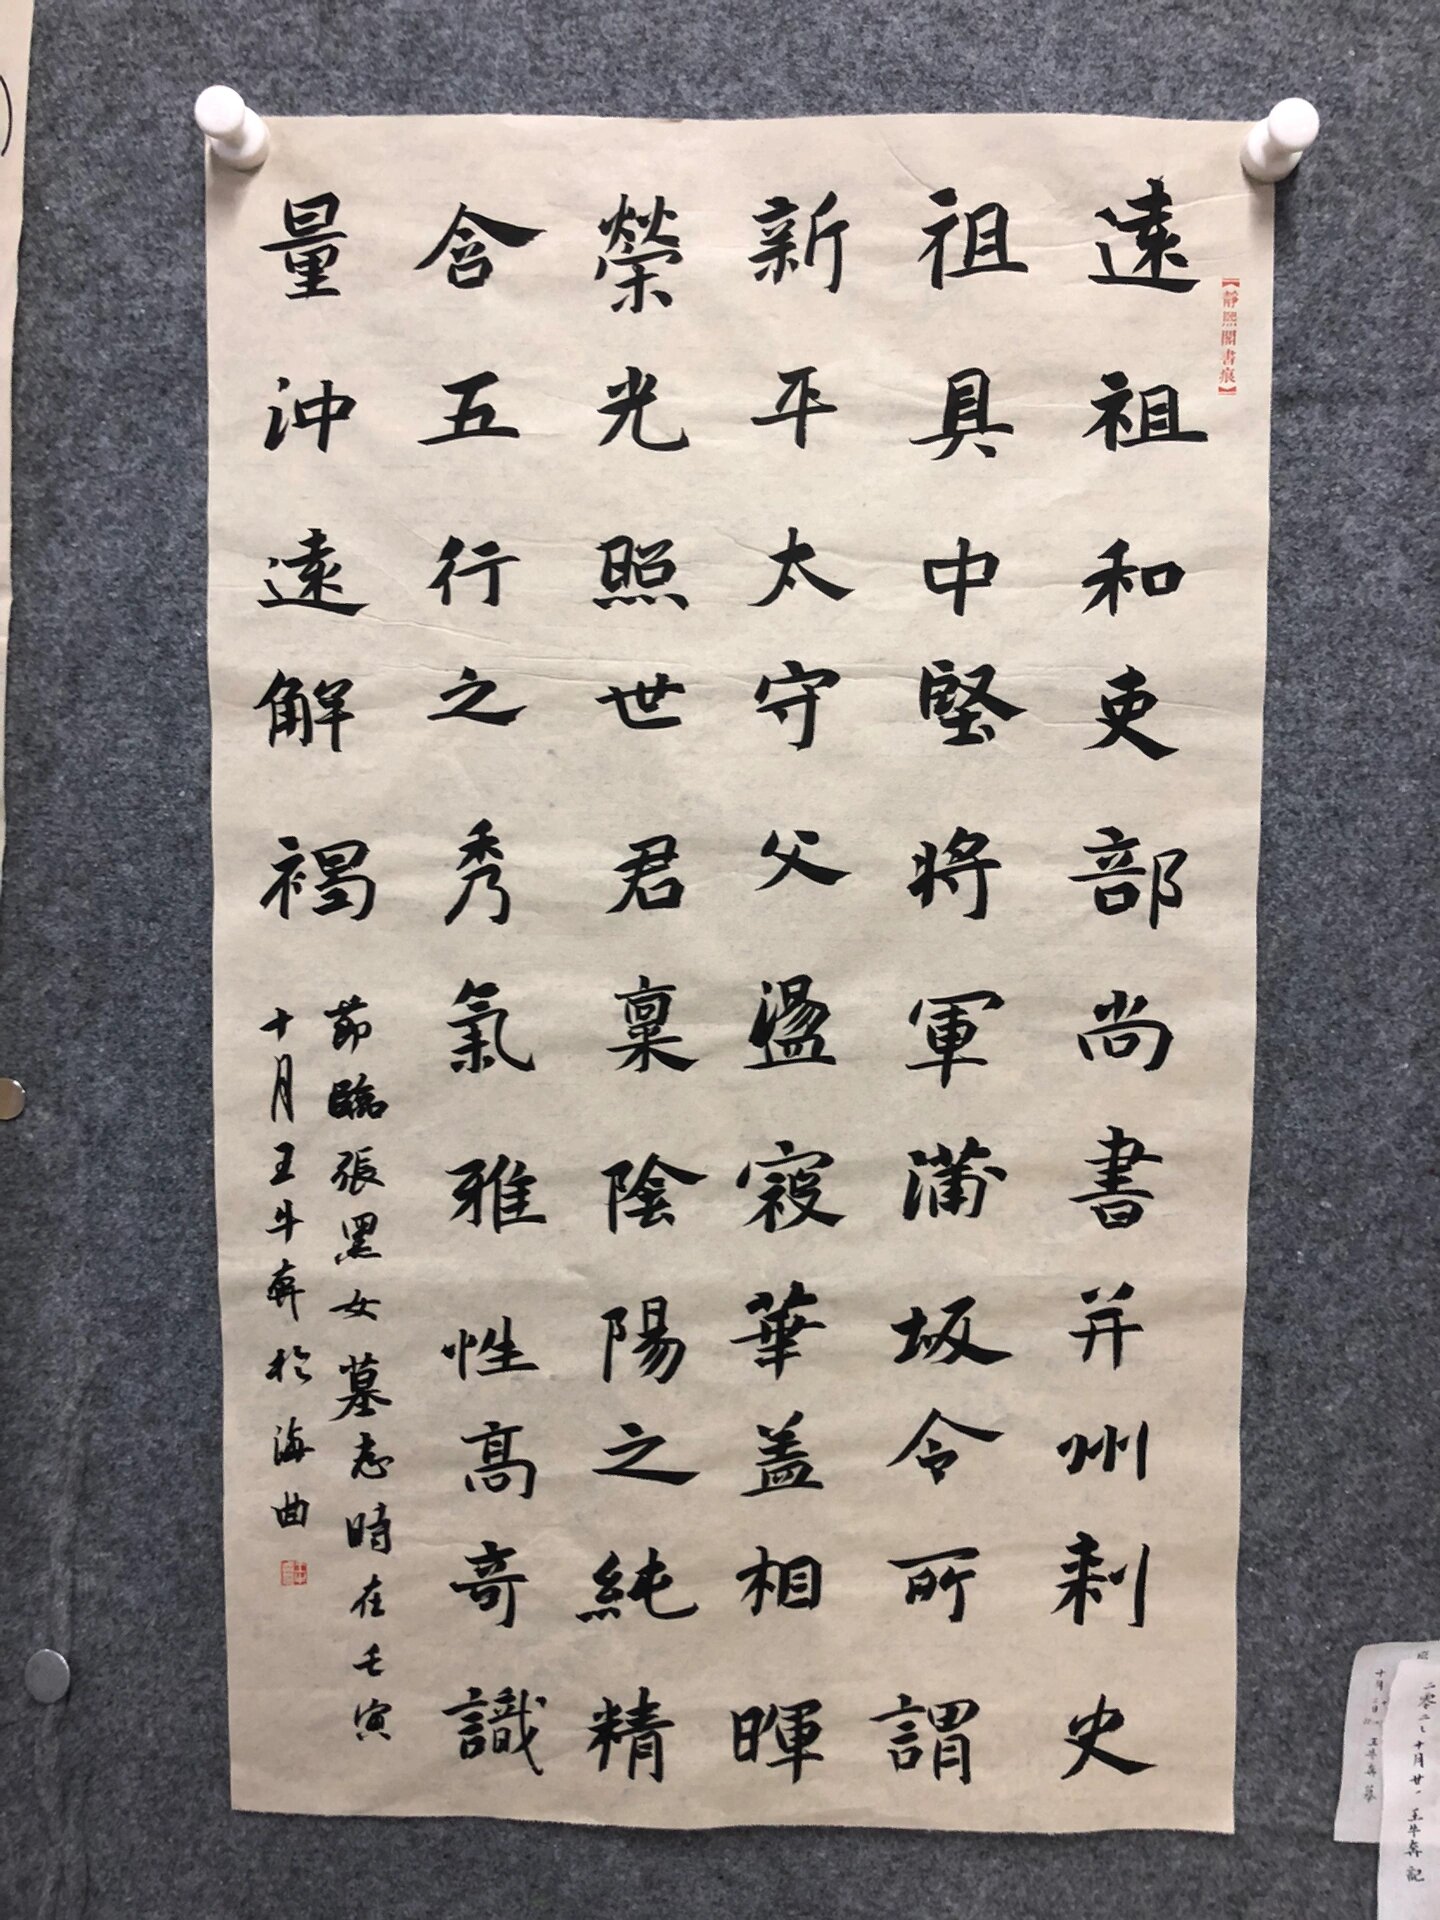 遠祖和吏部尚書并州刺史
祖具中堅將軍蒲坂令所謂
新平太守父盪寇華盖相暉
榮光照世君稟陰陽之純精
含五行之秀氣雅性高奇識
量沖遠解褐
節臨張黑女墓志時在壬寅
十月王牛犇於海曲
【靜熙閣書痕】
二零二二十月廿一王牛犇記